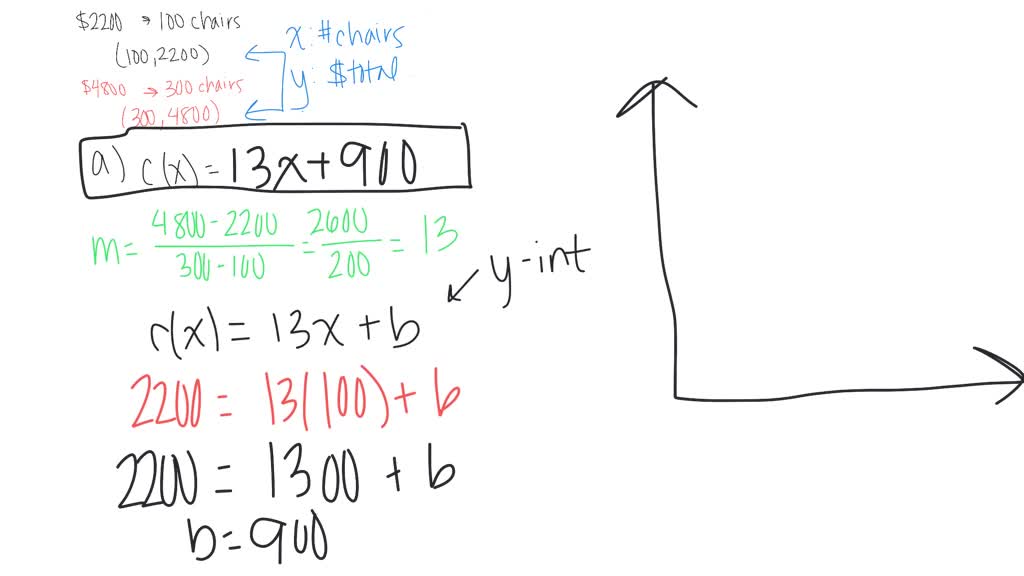 $2200 → 100 chairs
(100, 2200)
$4800 → 300 chairs
(300, 4800)
x: #chairs
y: $total
a) c(x) = 13x + 900
m = 4800 - 2200 / 300 - 100 = 2600 / 200 = 13
y-int
c(x) = 13x + b
2200 = 13(100) + b
2200 = 1300 + b
b = 900